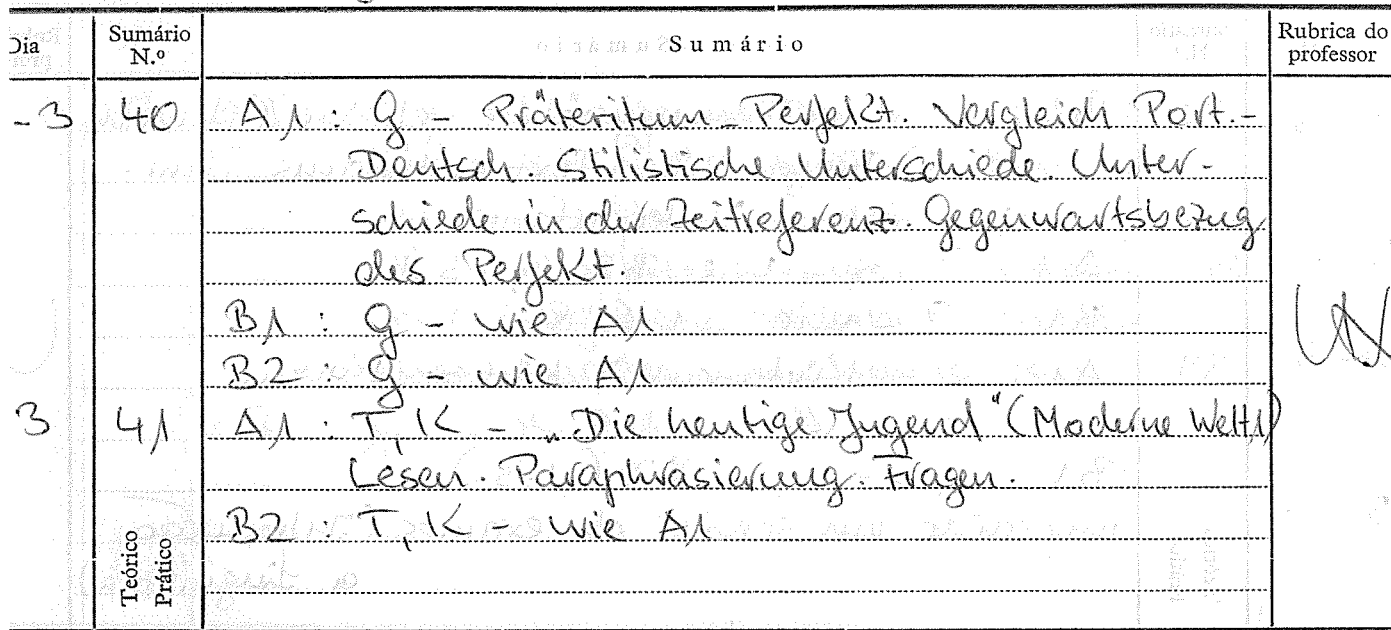 Dia Sumário N.º Sumário Rubrica do professor
-3 40 A1 : G - Präteritum - Perfekt. Vergleich Port.-
Deutsch. Stilistische Unterschiede. Unter-
schiede in der Zeitreferenz. Gegenwartsbezug
des Perfekt.
B1 : G - wie A1
B2 : G - wie A1
3 41 A1 : T, K - „Die heutige Jugend" (Moderne Welt 1)
Lesen. Paraphrasierung. Fragen.
B2 : T, K - wie A1
Teórico
Prático